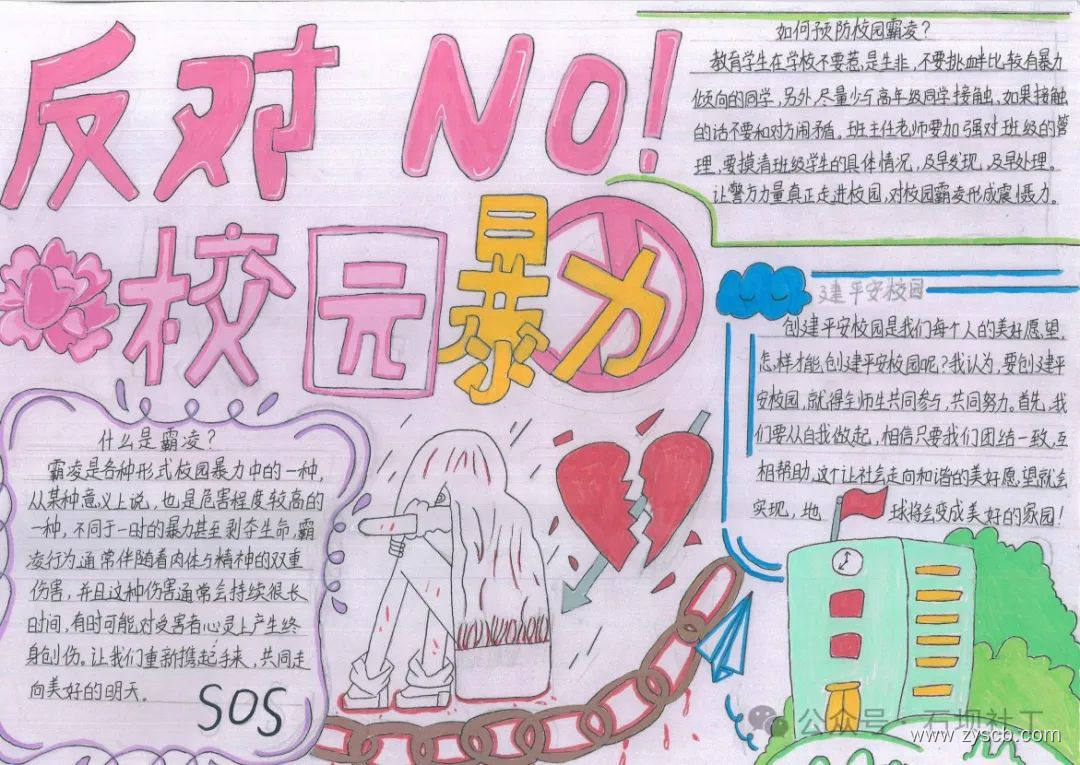 反对 NO!
校园暴力
如何预防校园霸凌？
教育学生在学校不要惹是生非，不要挑衅比较有暴力
倾向的同学，另外，尽量少与高年级同学接触，如果接触
的话不要和对方闹矛盾。班主任老师要加强对班级的管
理，要摸清班级学生的具体情况，及早发现，及早处理。
让警方力量真正走进校园，对校园霸凌形成震慑力。
建平安校园
创建平安校园是我们每个人的美好愿望，
怎样才能创建平安校园呢？我认为，要创建平
安校园，就得全师生共同参与，共同努力。首先，我
们要从自我做起，相信只要我们团结一致，互
相帮助，这个让社会走向和谐的美好愿望就会
实现，地球将会变成美好的家园！
什么是霸凌？
霸凌是各种形式校园暴力中的一种，
从某种意义上说，也是危害程度较高的
一种，不同于一时的暴力甚至剥夺生命，霸
凌行为通常伴随着肉体与精神的双重
伤害，并且这种伤害通常会持续很长
时间，有时可能对受害者心灵上产生终
身创伤。让我们重新携起手来，共同走
向美好的明天。
SOS
公众号·石坝社工
www.zyscb.com